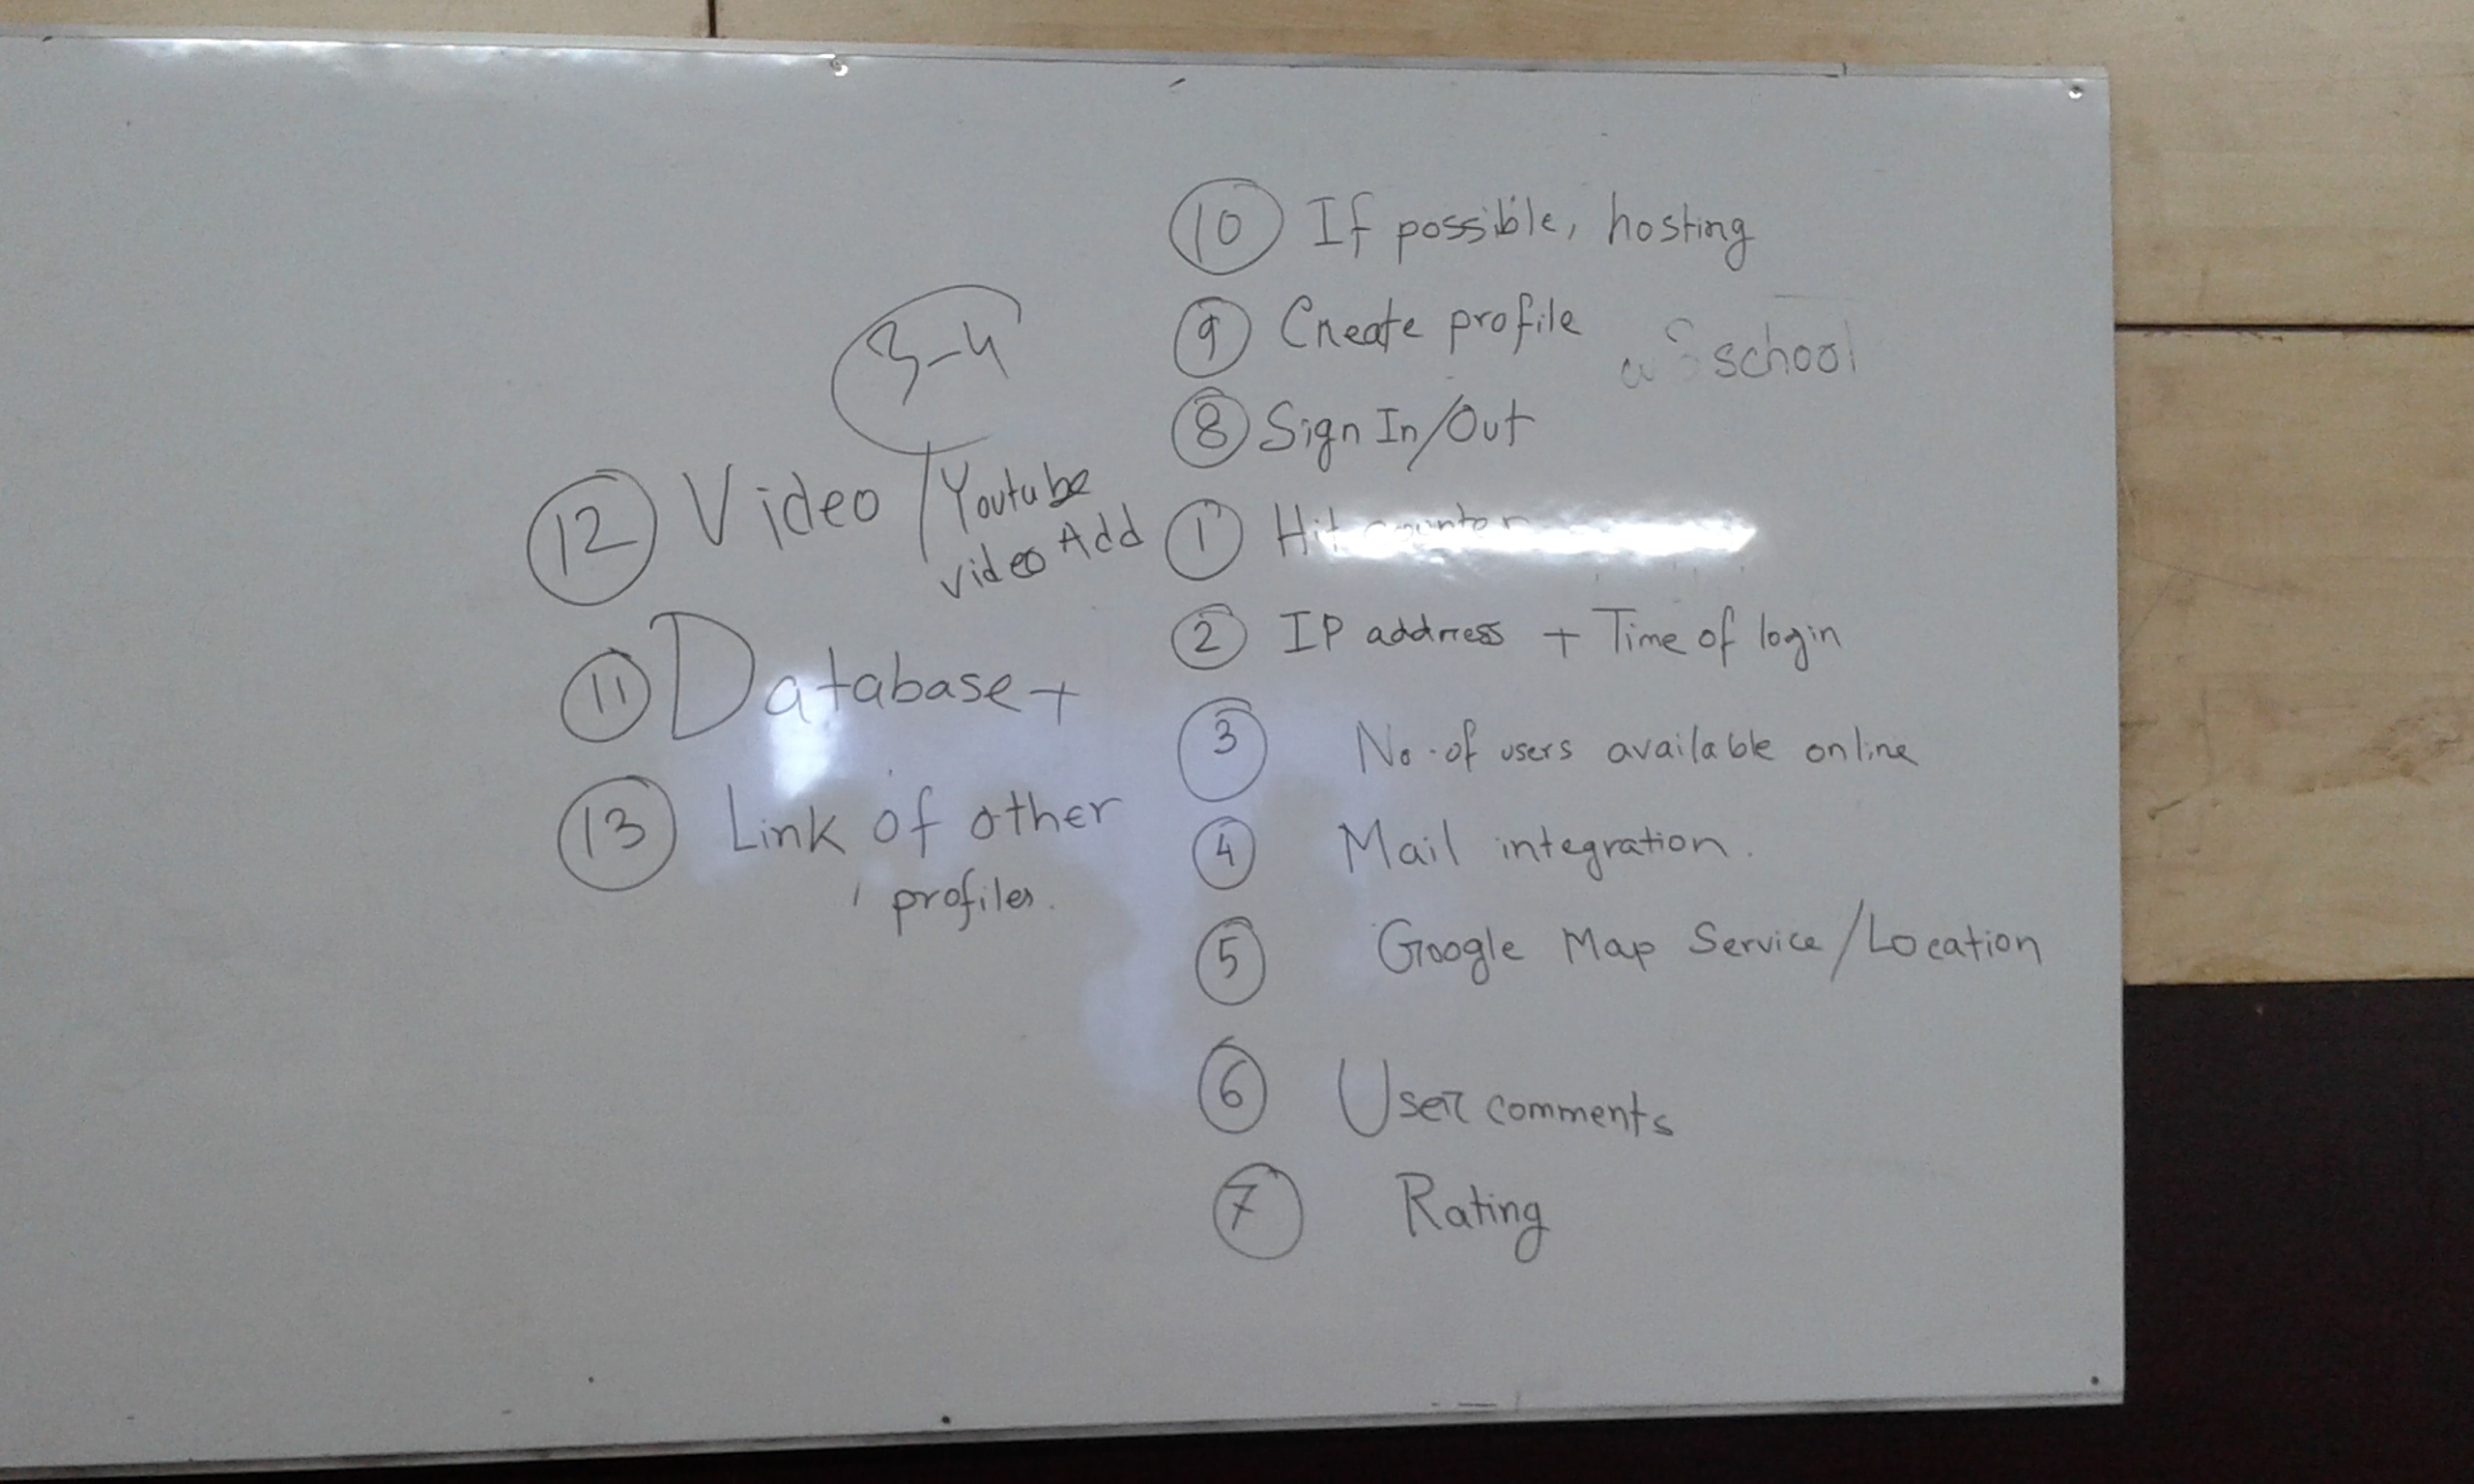 3-4
12 Video / Youtube
video Add
11 Database +
13 Link of other
profiles.
10 If possible, hosting
9 Create profile
w3school
8 Sign In/Out
1 Hit counter
2 IP address + Time of login
3 No. of users available online
4 Mail integration.
5 Google Map Service/Location
6 User comments
7 Rating